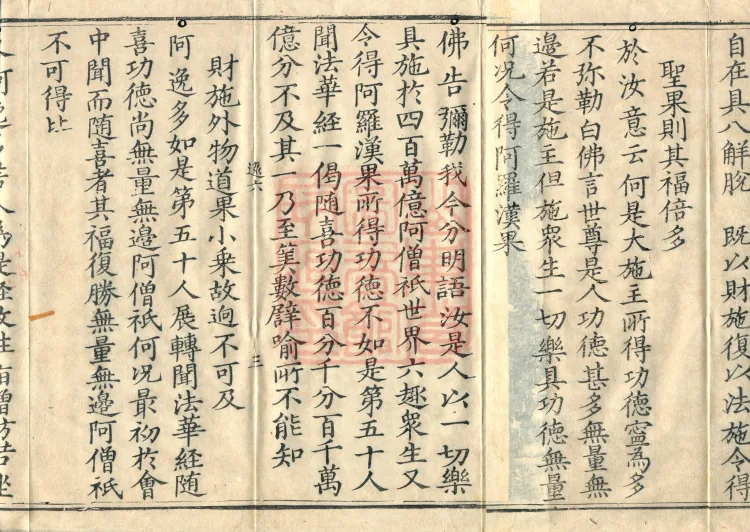 自在具八解脫 既以財施復以法施令得
聖果則其福倍多
於汝意云何是大施主所得功德寧為多
不弥勒白佛言世尊是人功德甚多無量無
邉若是施主但施衆生一切樂具功德無量
何況令得阿羅漢果
佛告彌勒我今分明語汝是人以一切樂
具施於四百萬億阿僧祇世界六趣衆生又
令得阿羅漢果所得功德不如是第五十人
聞法華經一偈随喜功德百分千分百千萬
億分不及其一乃至筭數譬喻所不能知
逸六 三
財施外物道果小乗故逈不可及
阿逸多如是第五十人展轉聞法華經随
喜功德尚無量無邊阿僧祇何況最初於會
中聞而随喜者其福復勝無量無邉阿僧祇
不可得比
人為是經故往 僧坊 坐